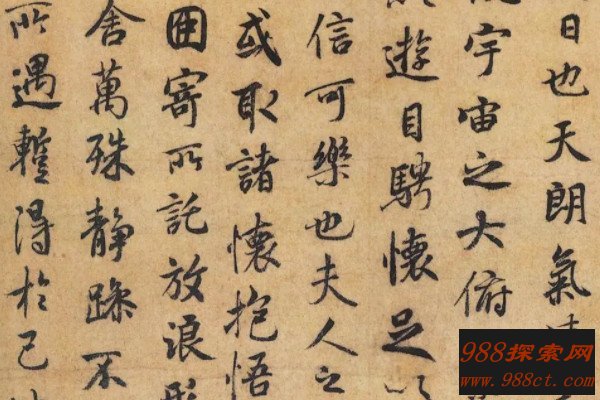 日也天朗氣
宇宙之大俯
遊目騁懷足以
信可樂也夫人之
或取諸懷抱悟
因寄所託放浪形
舍萬殊靜躁不
所遇蹔得於己
988探索网
www.988ct.com